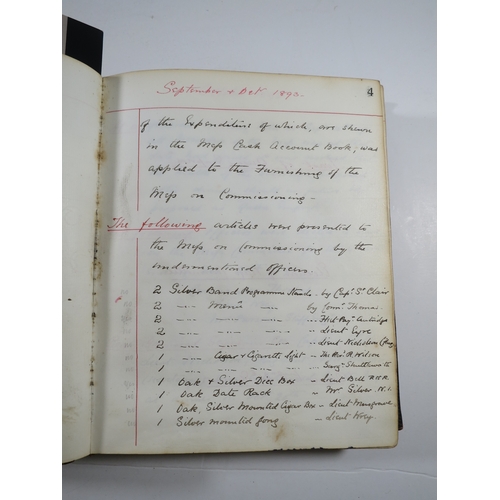 September & Oct 1893.
4
of the Expenditure of which, are shewn
in the Mess Cash Account Book, was
applied to the Furnishing of the
Mess on Commissioning -
The following articles were presented to
the Mess, on Commissioning by the
undermentioned officers.
2 Silver Band Programme Stands - by Capt St Clair
2 " Menu " by Comr Thomas
2 " " - Fleet Pay
2 " " - Lieut Eyre
2 " " - Lieut Nicholson
1 " Cigar & Cigarette Light - The Revd R. Wilson
1 " " - Shuttleworth
1 Oak & Silver Dice Box - Lieut Bell R.N.R.
1 Oak Date Rack " Mr Silver. N.I.
1 Oak, Silver Mounted Cigar Box - Lieut Musgrave
1 Silver mounted Gong - Lieut